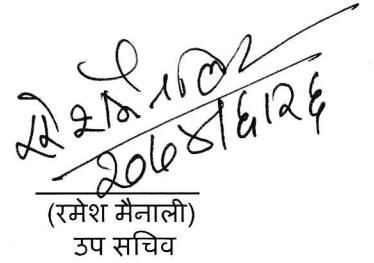 २०७४।६।२६
(रमेश मैनाली)
उप सचिव